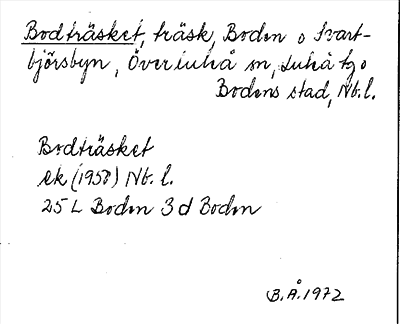 Bodträsket, träsk, Boden o Svart-
björsbyn, Överluleå sn, Luleå tg o
Bodens stad, Nb. l.
Bodträsket
ek (1958) Nb. l.
25 L Boden 3 d Boden
B.Å. 1972